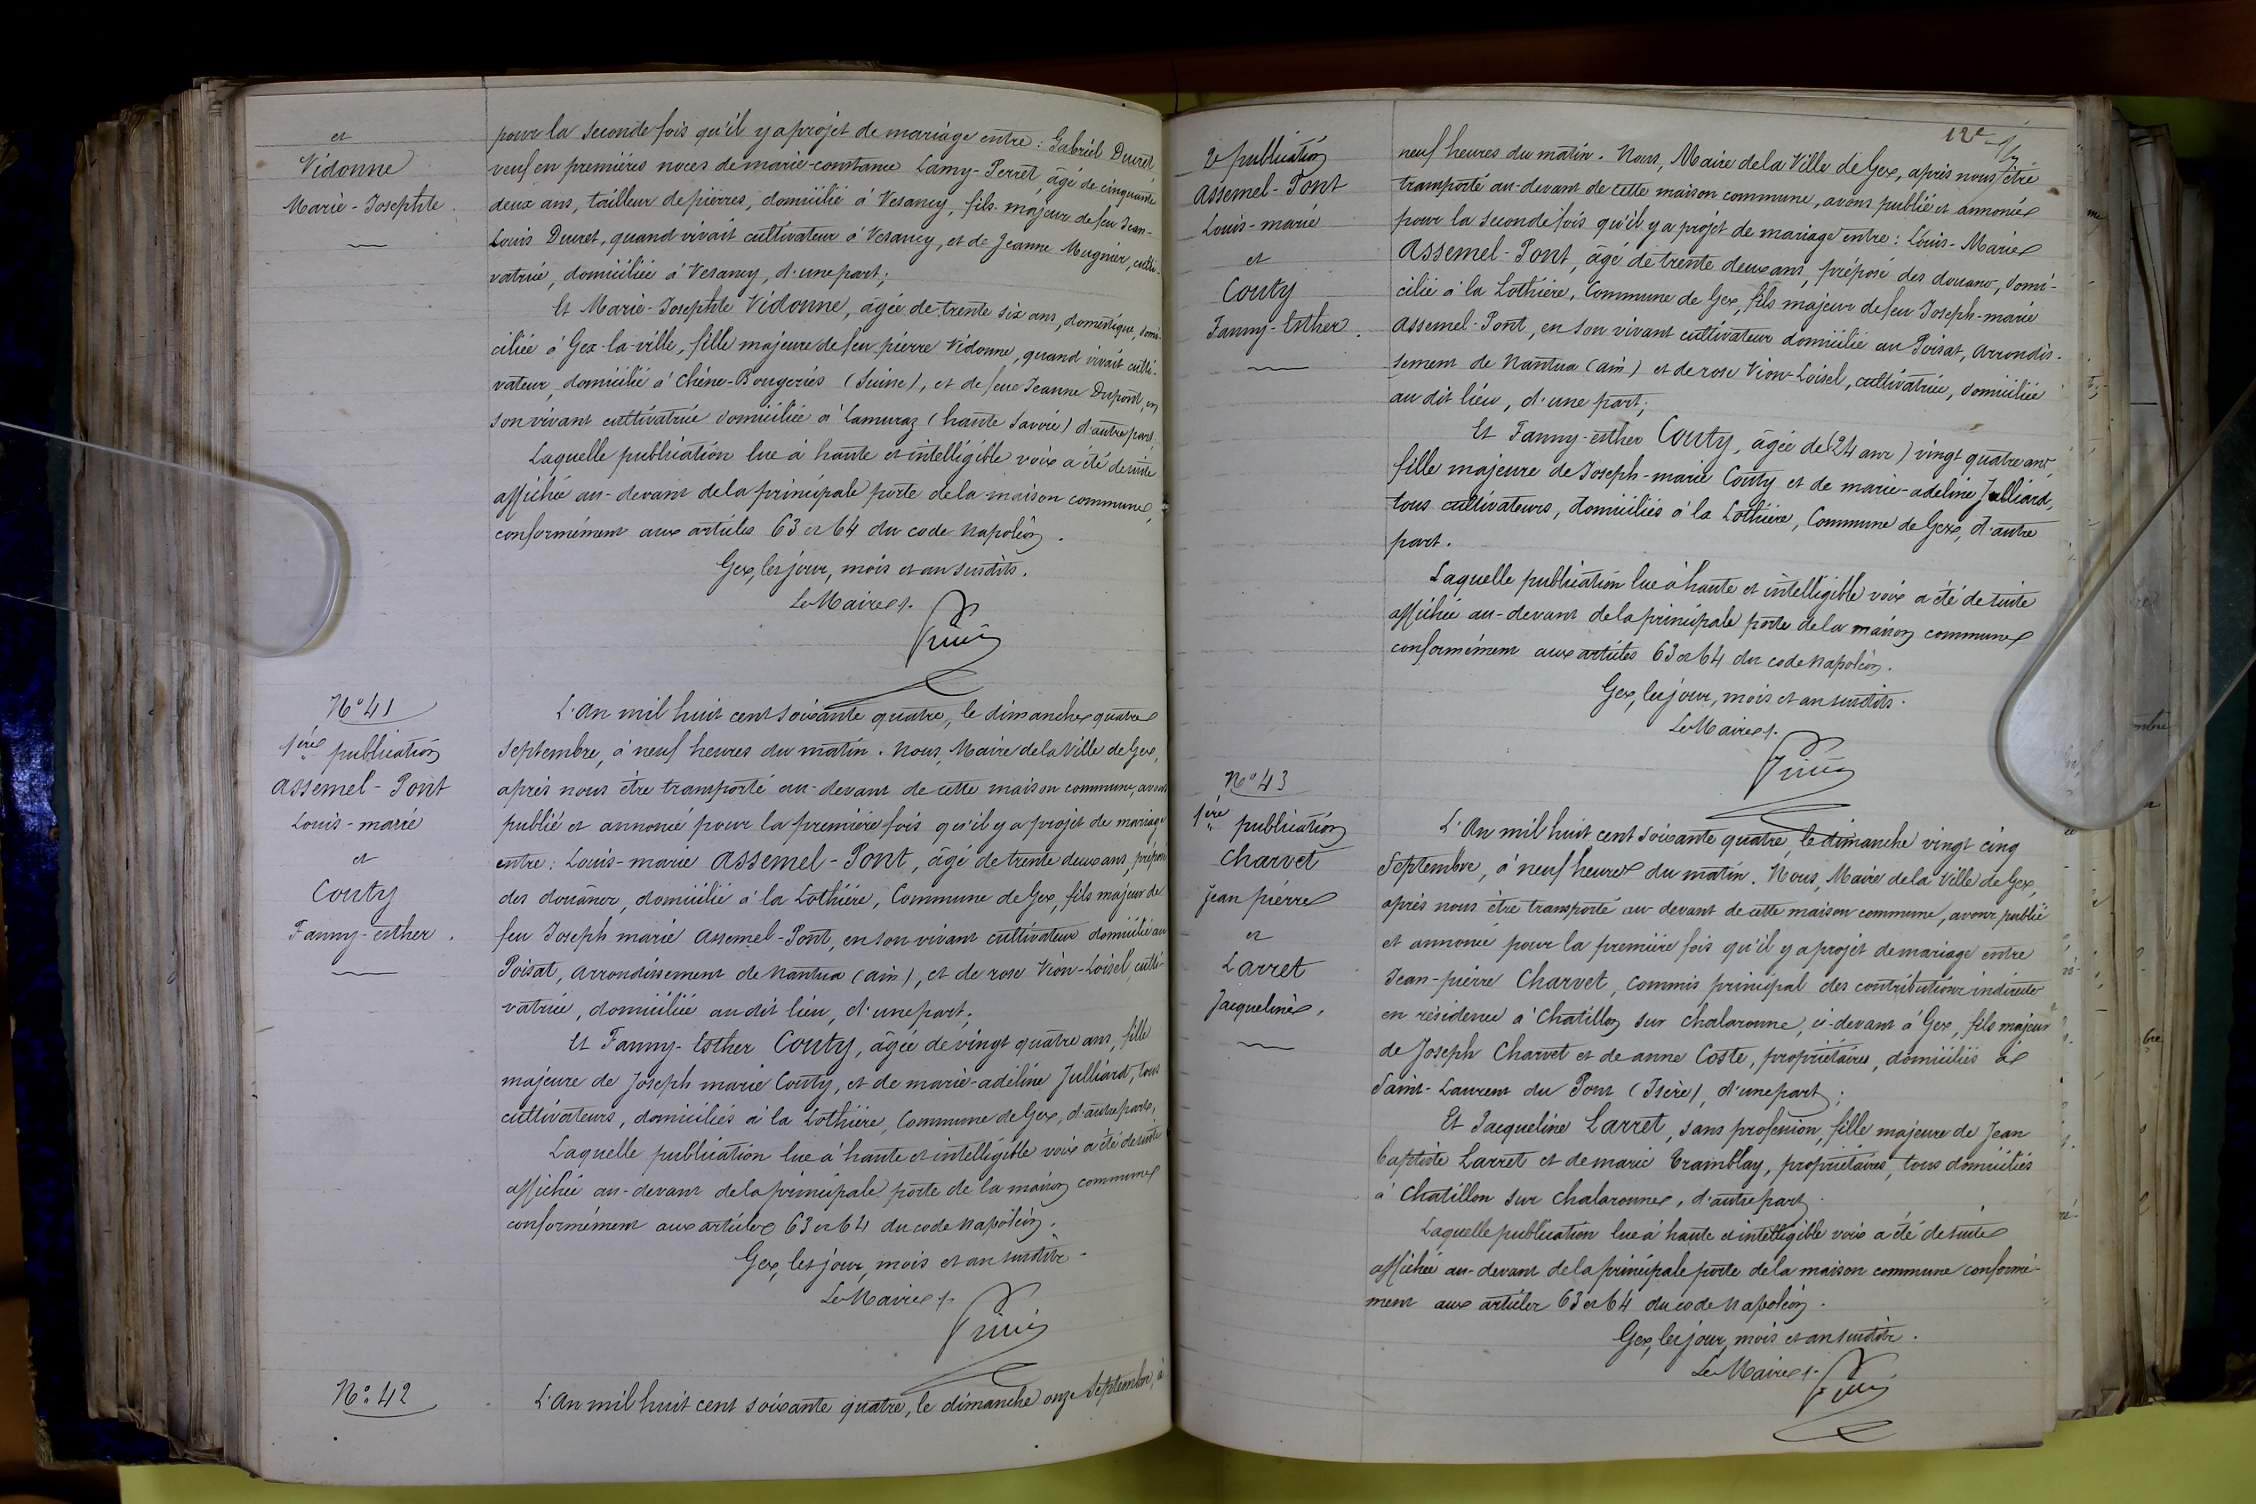 et
Vidonne
Marie-Josephte.
pour la seconde fois qu'il y a projet de mariage entre : Gabriel Duret,
veuf en premières noces de marie-constance Lamy-Perret, âgé de cinquante
deux ans, tailleur de pierres, domicilié à Vesancy, fils majeur de feu Jean-
Louis Duret, quand vivait cultivateur à Vesancy, et de Jeanne Mugnier, culti-
vatrice, domiciliée à Vesancy, d'une part;
Et Marie-Josephte Vidonne, âgée de trente six ans, domestique, domi-
ciliée à Gex-la-ville, fille majeure de feu pierre Vidonne, quand vivait culti-
vateur, domicilié à Chêne-Bougeries (Suisse), et de feue Jeanne Dupont, en
son vivant cultivatrice domiciliée à Lamuraz (haute Savoie) d'autre part.
Laquelle publication lue à haute et intelligible voix a été de suite
affichée au-devant de la principale porte de la maison commune,
conformément aux articles 63 et 64 du code Napoléon.
Gex, les jour, mois et an susdits.
Le Maire
N° 41
1ère publication
Assemel-Pont
Louis-marie
et
Couty
Fanny-esther.
L'An mil huit cent soixante quatre, le dimanche quatre
Septembre, à neuf heures du matin. Nous, Maire de la Ville de Gex,
après nous être transporté au-devant de cette maison commune, avons
publié et annoncé pour la première fois qu'il y a projet de mariage
entre : Louis-marie Assemel-Pont, âgé de trente deux ans, préposé
des douanes, domicilié à la Lothière, Commune de Gex, fils majeur de
feu Joseph marie Assemel-Pont, en son vivant cultivateur domicilié au
Poisat, arrondissement de Nantua (ain), et de rose Vion-Loisel, culti-
vatrice, domiciliée audit lieu, d'une part;
Et Fanny-Esther Couty, âgée de vingt quatre ans, fille
majeure de Joseph marie Couty, et de marie-adeline Julliard, tous
cultivateurs, domiciliés à la Lothière, Commune de Gex, d'autre part.
Laquelle publication lue à haute et intelligible voix a été de suite
affichée au-devant de la principale porte de la maison commune
conformément aux articles 63 et 64 du code Napoléon.
Gex, les jour, mois et an susdits.
Le Maire
N° 42
L'An mil huit cent soixante quatre, le dimanche onze Septembre, à
12e
2e publication
Assemel-Pont
Louis-marie
et
Couty
Fanny-Esther.
neuf heures du matin. Nous, Maire de la Ville de Gex, après nous être
transporté au-devant de cette maison commune, avons publié et annoncé
pour la seconde fois qu'il y a projet de mariage entre : Louis-Marie
Assemel-Pont, âgé de trente deux ans, préposé des douanes, domi-
cilié à la Lothière, Commune de Gex, fils majeur de feu Joseph-marie
Assemel-Pont, en son vivant cultivateur domicilié au Poisat, arrondis-
sement de Nantua (ain) et de rose Vion-Loisel, cultivatrice, domiciliée
au dit lieu, d'une part;
Et Fanny-esther Couty, âgée de (24 ans) vingt quatre ans,
fille majeure de Joseph-marie Couty et de marie-adeline Julliard,
tous cultivateurs, domiciliés à la Lothière, Commune de Gex, d'autre
part.
Laquelle publication lue à haute et intelligible voix a été de suite
affichée au-devant de la principale porte de la maison commune
conformément aux articles 63 et 64 du code Napoléon.
Gex, les jour, mois et an susdits.
Le Maire
N° 43
1ère publication
Charvet
Jean pierre
et
Larret
Jacqueline.
L'An mil huit cent soixante quatre, le dimanche vingt cinq
Septembre, à neuf heures du matin. Nous, Maire de la Ville de Gex,
après nous être transporté au-devant de cette maison commune, avons publié
et annoncé pour la première fois qu'il y a projet de mariage entre
Jean-pierre Charvet, commis principal des contributions indirectes
en résidence à Chatillon sur chalaronne, ci-devant à Gex, fils majeur
de Joseph Charvet et de anne Coste, propriétaires, domiciliés à
Saint-Laurent du Pont (Isère), d'une part;
Et Jacqueline Larret, sans profession, fille majeure de Jean
baptiste Larret et de marie Tramblay, propriétaires, tous domiciliés
à Chatillon sur Chalaronne, d'autre part.
Laquelle publication lue à haute et intelligible voix a été de suite
affichée au-devant de la principale porte de la maison commune conformé-
ment aux articles 63 et 64 du code Napoléon.
Gex, les jour, mois et an susdits.
Le Maire